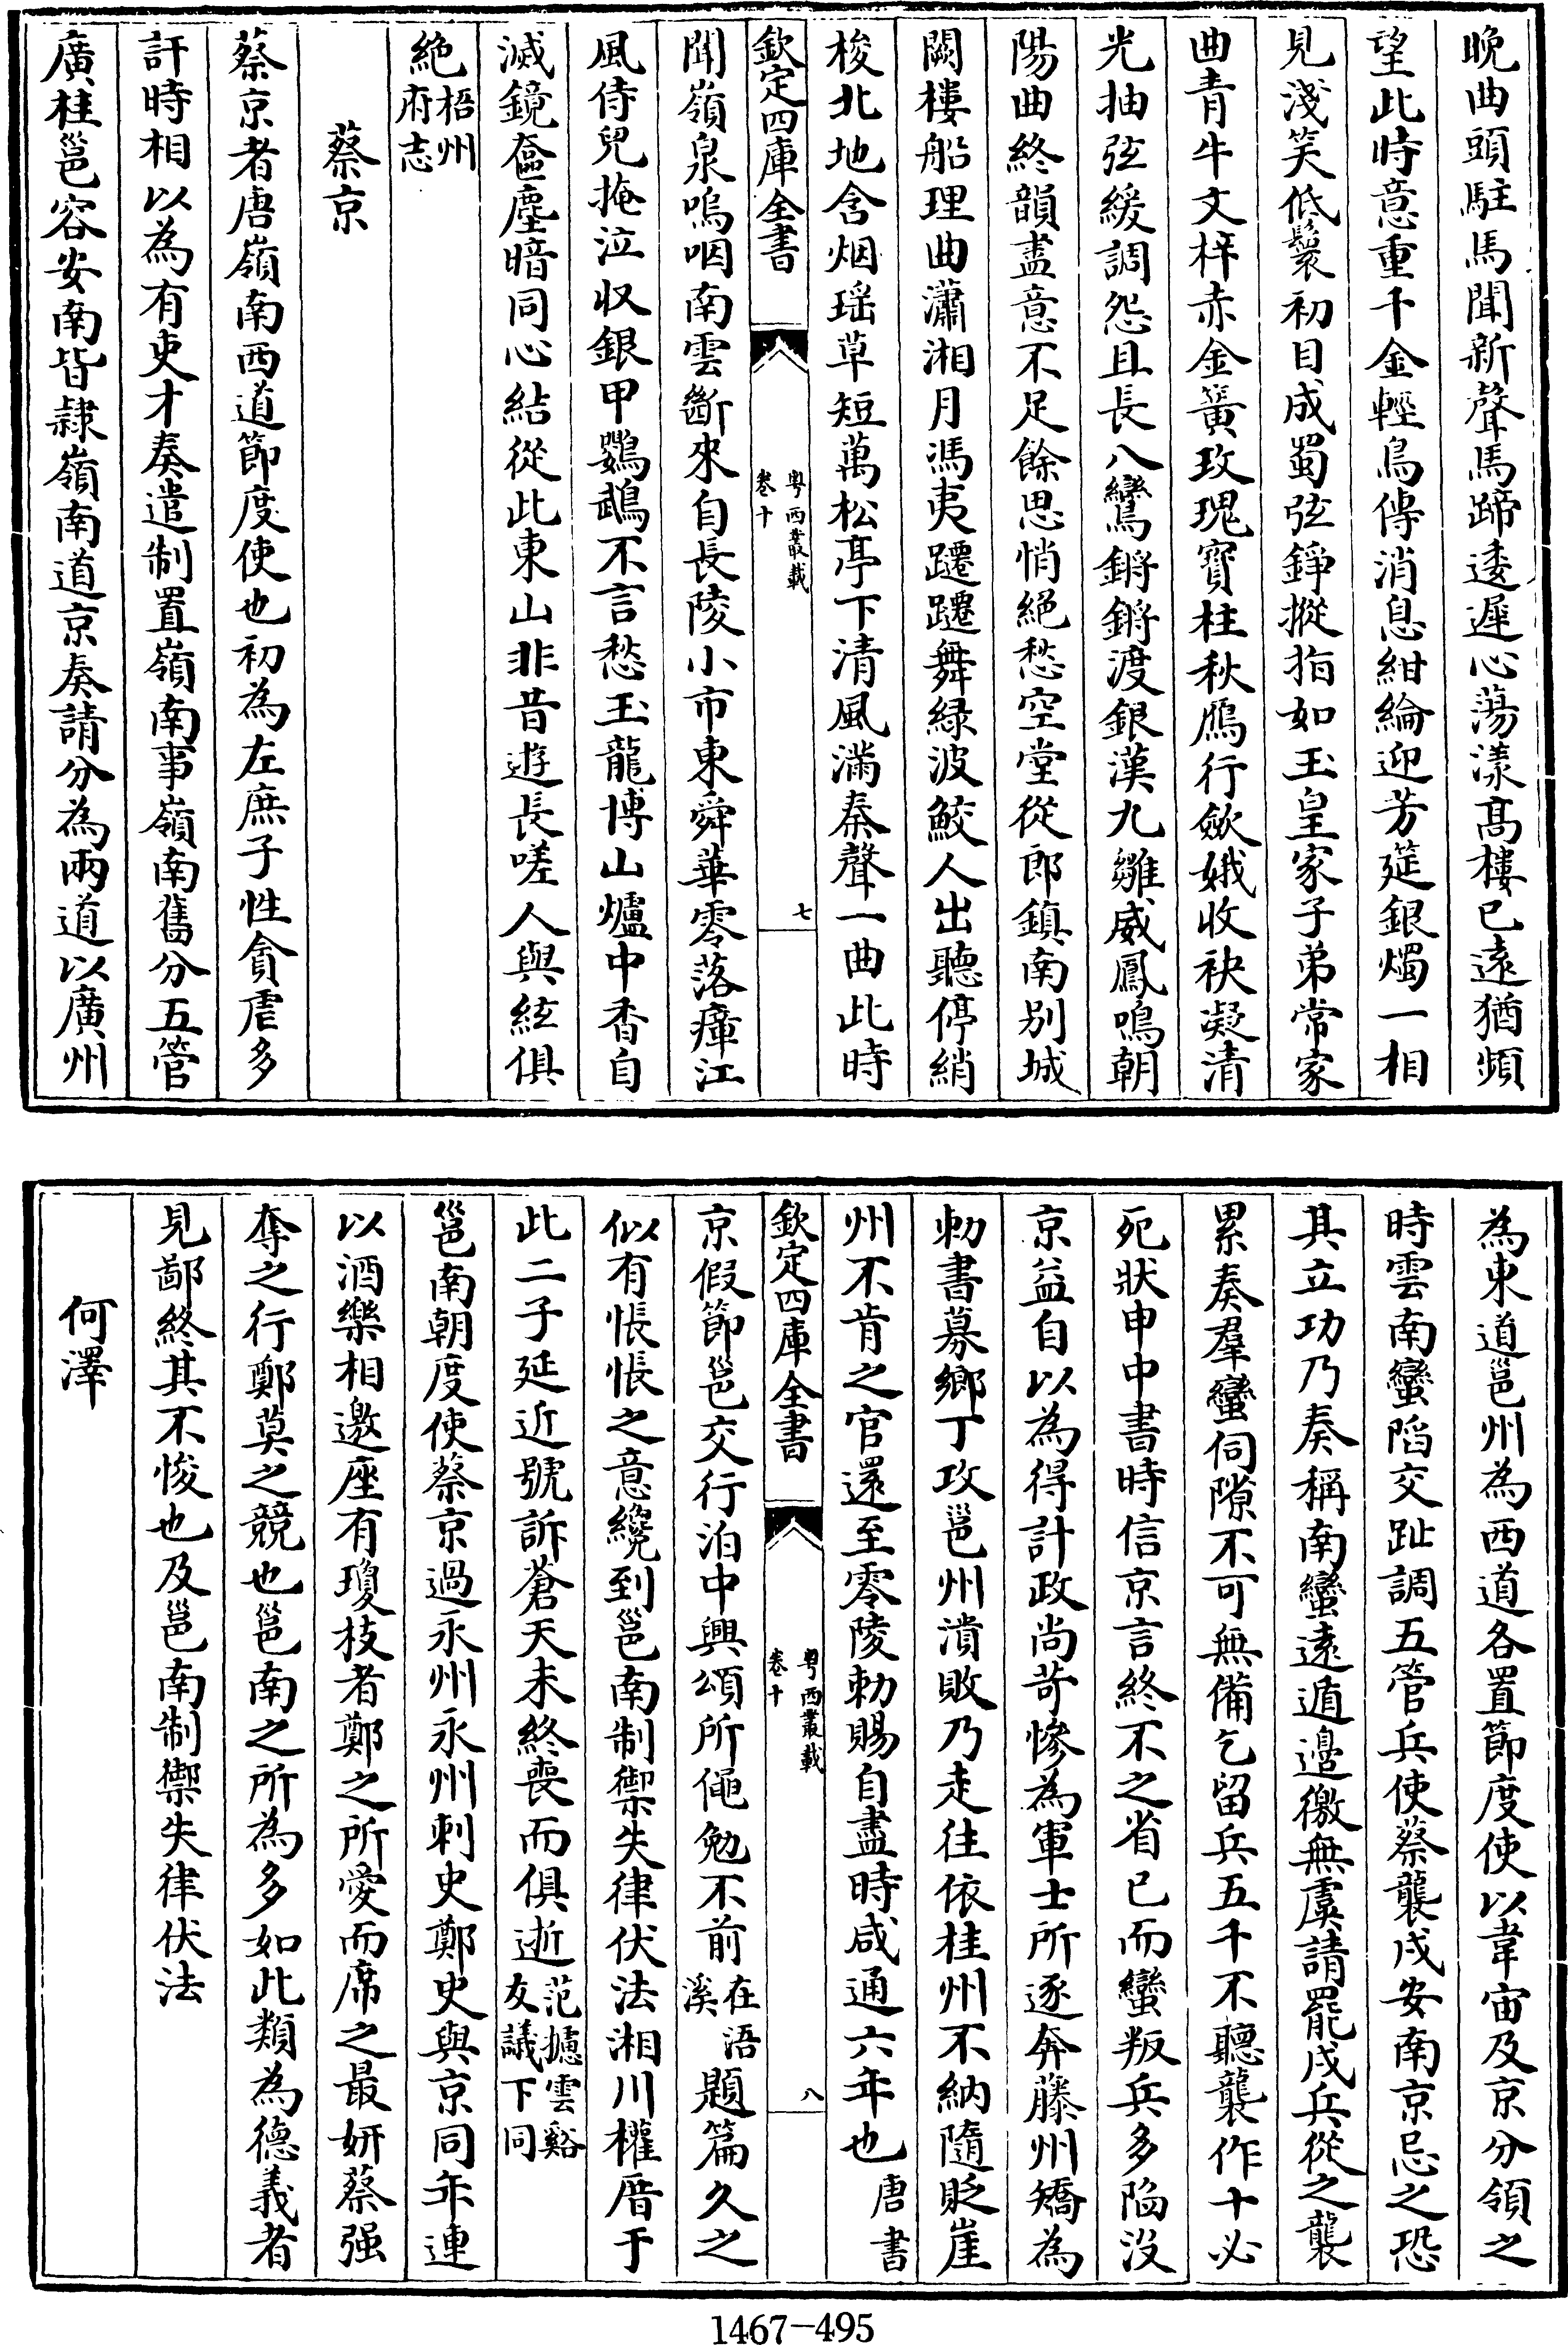 晚曲頭駐馬聞新聲馬蹄逶遲心蕩漾髙樓已遠猶頻
望此時意重千金輕鳥傳消息紺綸迎芳筵銀燭一相
見淺笑低鬟初目成蜀弦錚摐指如玉皇家子弟常家
曲青牛文梓赤金簧玫瑰寳柱秋鴈行斂娥收袂凝清
光抽弦緩調怨且長八鸞鏘鏘渡銀漢九雛威鳳鳴朝
陽曲終韻盡意不足餘思悄絶愁空堂從郎鎮南别城
闕樓船理曲瀟湘月馮夷蹮蹮舞緑波鮫人出聽停綃
梭北地含烟瑶草短萬松亭下清風滿秦聲一曲此時
欽定四庫全書
粤西叢載
卷十
七
聞嶺泉嗚咽南雲斷來自長陵小市東舜華零落瘴江
風侍兒掩泣収銀甲鸚鵡不言愁玉龍博山爐中香自
滅鏡奩塵暗同心結從此東山非昔遊長嗟人與絃俱
絶梧州府志
蔡京
蔡京者唐嶺南西道節度使也初為左庶子性貪虐多
訐時相以為有吏才奏遣制置嶺南事嶺南舊分五管
廣桂邕容安南皆隷嶺南道京奏請分為兩道以廣州
為東道邕州為西道各置節度使以韋宙及京分領之
時雲南蠻陷交趾調五管兵使蔡襲戍安南京忌之恐
其立功乃奏稱南蠻遠遁邉徼無虞請罷戍兵從之襲
累奏羣蠻伺隙不可無備乞留兵五千不聽襲作十必
死狀申中書時信京言終不之省已而蠻叛兵多陷沒
京益自以為得計政尚苛慘為軍士所逐奔藤州矯為
勅書募鄉丁攻邕州潰敗乃走往依桂州不納隨貶崖
州不肯之官還至零陵勅賜自盡時咸通六年也唐書
欽定四庫全書
粤西叢載
卷十
八
京假節邕交行泊中興頌所僶勉不前在浯溪題篇久之
似有悵悵之意纔到邕南制禦失律伏法湘川權厝于
此二子延近號訴蒼天未終喪而俱逝范攄雲谿友議下同
邕南朝度使蔡京過永州永州刺史鄭史與京同年連
以酒樂相邀座有瓊枝者鄭之所愛而席之最妍蔡强
奪之行鄭莫之競也邕南之所為多如此類為德義者
見鄙終其不悛也及邕南制禦失律伏法
何澤
1467-495